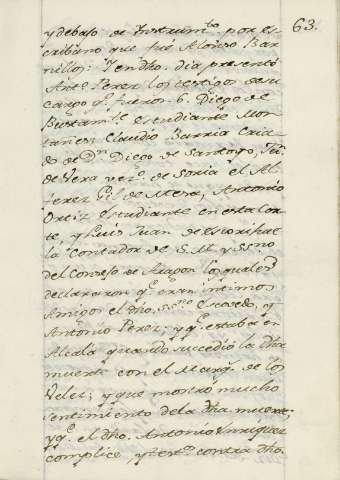 63.
y debajo de Instrum.to por es
cribano que fue Alonso Bar
nillos: Y en dho. dia presentó
Ant.o Perez los testigos de su
cargo q.e fueron 6. Diego de
Bustam.te estudiante Mon
tañes, Claudio Barria Cria
do de D.n Diego de Santoyo,
de Vera vez.o de Soria el Al
ferez Gil de Mesa, Antonio
Ortiz estudiante en esta Cor
te, y Luis Juan de
la Contador de S. M. y SSno
del Consejo de Aragon los quales
declararon q.e eran intimos
Amigos el dho. Escovedo, y
Antonio Perez; y q.e estaba en
Alcalá quando sucedió la dha
muerte con el Marq.s de los
Velez; y que mostró mucho
sentimiento de la dha. muerte,
y q.e el dho. Antonio Enriquez
complice, y test.o contra dho.